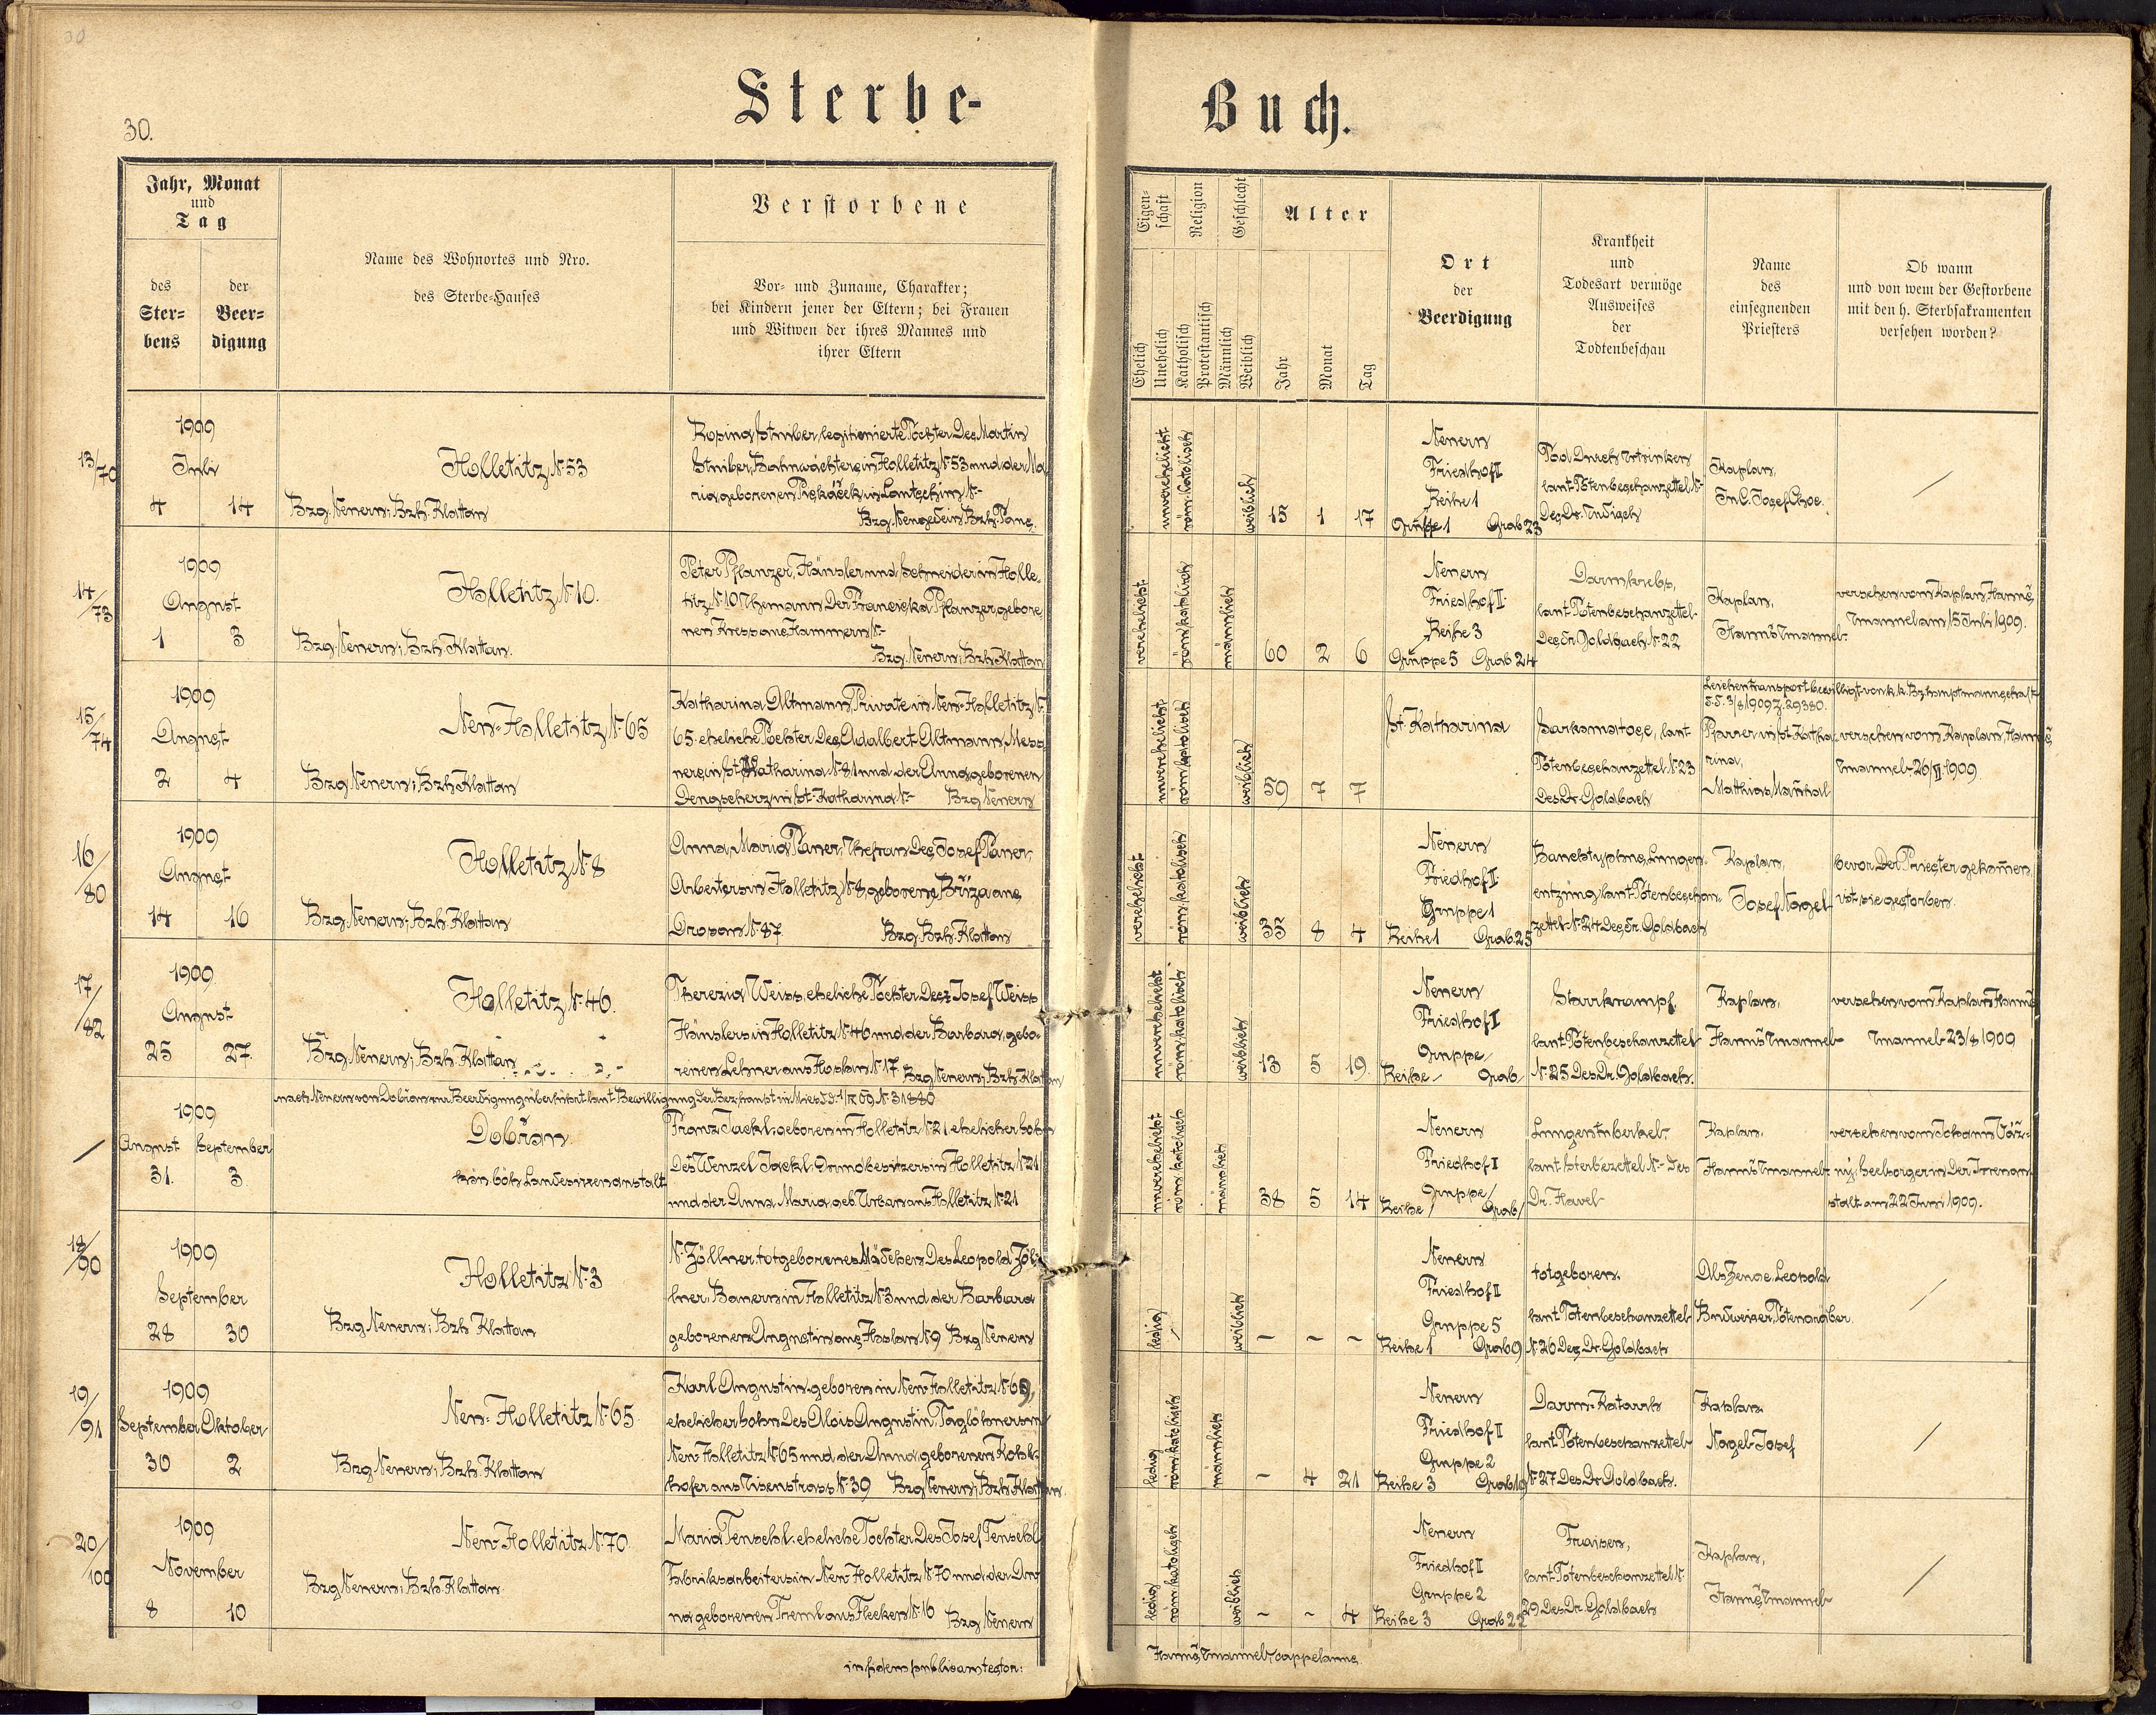 30
30.
Sterbe-Buch.
Jahr, Monat
und
Tag
des
Ster-
bens
der
Beer-
digung
Name des Wohnortes und Nro.
des Sterbe-Hauses
Verstorbene
Vor- und Zuname, Charakter;
bei Kindern jener der Eltern; bei Frauen
und Witwen der ihres Mannes und
ihrer Eltern
Eigen-
schaft
Religion
Geschlecht
Ehelich
Unehelich
Katholisch
Protestantisch
Männlich
Weiblich
Alter
Jahr
Monat
Tag
Ort
der
Beerdigung
Krankheit
und
Todesart vermöge
Ausweises
der
Todtenbeschau
Name
des
einsegnenden
Priesters
Ob wann
und von wem der Gestorbene
mit den h. Sterbsakramenten
versehen worden?
13/70
1909
Juli
4 14
Holletitz N: 53
Bzg. Neuern; Bzh. Klattau
Rosina Stuiber, legitimierte Tochter des Martin
Stuiber, Bahnwächters in Holletitz N: 53 und der Ma
ria geborenen Piskáček in
Bzg. Neugedein Bzh. Taus.
unverehelicht
röm. katolisch
weiblich
15 1 17
Neuern
Friedhof II
Reihe 1
Gruppe 1 Grab 23
Tod durch Ertrinken
laut Totenbeschauzettel N:-
des Dr.
Kaplan,
Josef
/
14/73
1909
August
1 3
Holletitz N: 10.
Bzg. Neuern; Bzh. Klattau.
Peter Pflanzer, Häusler und Schneider in Holle-
titz N: 10 Ehemann der Franciska Pflanzer, gebore
nen Kress aus Hammern N:-
Bzg. Neuern; Bzh. Klattau
verehelicht
röm. katolisch
männlich
60 2 6
Neuern
Friedhof II
Reihe 3
Gruppe 5 Grab 24
Darmkrebs,
laut Totenbeschauzettel
des Dr. Goldbach N: 22
Kaplan,
Hanuš Emanuel
versehen vom Kaplan, Hanuš,
Emanuel am 15 Juli 1909.
15/74
1909
August
2 4
Neu-Holletitz N: 65
Bzg. Neuern; Bzh. Klattau
Katharina Altmann, Private in Neu-Holletitz N:
65. eheliche Tochter des Adalbert Altmann, Mess
ners in St. Katharina N: 81 und der Anna geborenen
Dengscherz in St. Katharina N:- Bzg. Neuern
unverehelicht
röm. katolisch
weiblich
59 7 7
St. Katharina
Sarkomatose, laut
Totenbeschauzettel N: 23
des Dr. Goldbach
Leichentransport bewilligt von k. k. Bzhauptmannschaft
3/8 1909 Z. 29380.
Pfarrer in St. Katha-
rina,
Matthias
versehen vom Kaplan, Hanuš,
Emanuel 26/VI 1909
16/80
1909
August
14 16
Holletitz N: 8
Bzg. Neuern; Bzh. Klattau
Anna Maria Pauer, Ehefrau des Josef Pauer,
Arbeiters in Holletitz N: 8, geborene Bříza aus
N: 87 Bzg. Bzh. Klattau
verehelicht
röm. katolisch
weiblich
35 8 4
Neuern
Friedhof II
Gruppe 1
Reihe 1 Grab 25
Bauchtyphus, Lungen-
entzüng laut Totenbeschau-
zettel N: 24 des Dr. Goldbach
Kaplan,
Josef Nagel
bevor der Priester gekommen,
ist sie gestorben.
17/82
1909
August
25 27.
Holletitz N: 46.
Bzg. Neuern; Bzh. Klattau
Theresia Weiss, eheliche Tochter des Josef Weiss
Häuslers in Holletitz N: 46 und der Barbara, gebo-
renen Lehner aus N: 17 Bzg. Neuern; Bzh. Klattau
unverehelicht
röm. katolisch
weiblich
13 5 19
Neuern
Friedhof I
Gruppe /
Reihe / Grab /
Starrkrampf.
laut Totenbeschauzettel
N: 25 des Dr. Goldbach.
Kaplan,
Hanuš Emanuel
versehen vom Kaplan Hanuš
Emanuel 23/8 1909
nach Neuern von Dobřan zur Beerdigung überführt laut Bewilligung der Bezhaupt in Mies N: 31880
/
1909
August September
31. 3
Dobřan
kön. böh. Landesirrenanstalt
Franz Jackl, geboren in Holletitz N: 21 ehelicher Sohn
des Wenzel Jackl, Grundbesitzers in Holletitz N: 21
und der Anna Maria, geb. Urban aus Holletitz N: 21
unverehelicht
röm. katolisch
männlich
38 5 14
Neuern
Friedhof I
Gruppe /
Reihe / Grab /
Lungentuberkel.
laut Sterbezettel N:- des
Dr. Havel
Kaplan,
Hanuš Emanuel
versehen vom Johann
Seelsorger in der Irrenan
stalt am 22 Juni 1909.
18/90
1909
September
28 30
Holletitz N: 3
Bzg. Neuern; Bzh. Klattau
N: Zöllner, totgeborenes Mädchen des Leopold Zöll-
ner, Bauers in Holletitz N: 3 und der Barbara
geborenen Augustin aus N: 9 Bzg. Neuern
ledig
/
weiblich
- - -
Neuern
Friedhof II
Gruppe 5
Reihe 1 Grab 9
totgeboren.
laut Totenbeschauzettel
N: 26 des Dr. Goldbach
Als Zeuge Leopold
Budweiser, Totengräber
/
19/91
1909
September Oktober
30 2
Neu-Holletitz N: 65
Bzg. Neuern; Bzh. Klattau
Karl Augustin, geboren in Neu-Holletitz N: 69,
ehelicher Sohn des Alois Augustin, Taglöhners in
Neu-Holletitz N: 65 und der Anna geborenen
hofer aus Eisenstrass N: 39 Bzg. Neuern; Bzh. Klattau.
ledig
röm. katolisch
männlich
- 4 21
Neuern
Friedhof II
Gruppe 2
Reihe 3 Grab 19
Darm-Katarrh
laut Totenbeschauzettel
N: 27 des Dr. Goldbach.
Kaplan
Nagel Josef
/
20/100
1909
November
8 10
Neu-Holletitz N: 70
Bzg. Neuern; Bzh. Klattau.
Maria Tenschl, eheliche Tochter des Josef Tenschl
Fabriksarbeiters in Neu-Holletitz N: 70 und der An-
na geborenen Treml aus Flecken N: 16 Bzg. Neuern
ledig
röm. katolisch
weiblich
- - 4
Neuern
Friedhof II
Gruppe 2
Reihe 3 Grab 22
Fraisen,
laut Totenbeschauzettel N:
29 des Dr. Goldbach
Kaplan,
Hanuš Emanuel
/
in fidem publicam testor:
Hanuš Emanuel, cappelanus